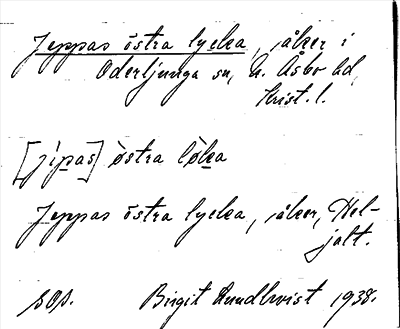 Jeppas östra lycka, åker i
Oderljunga sn, N. Åsbo hd,
Krist. l.
[jìpas] òstra lòka
Jeppas östra lycka, åker, Hel-
jalt.
sos. Birgit Rundkvist 1938.